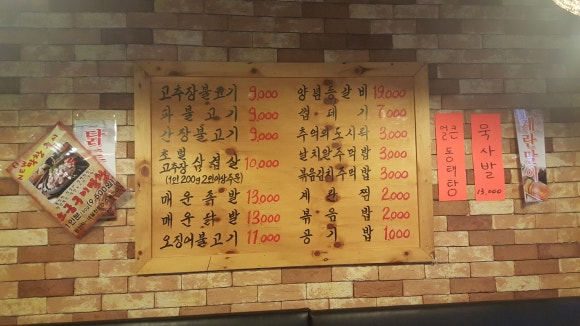 고추장불고기 9,000
파불고기 9,000
간장불고기 9,000
초벌
고추장삼겹살 10,000
(1인 200g 2인이상주문)
매운족발 13,000
매운닭발 13,000
오징어불고기 11,000
양념등갈비 19,000
껍데기 7,000
추억의도시락 3,000
날치알주먹밥 3,000
볶음김치주먹밥 3,000
계란찜 2,000
볶음밥 2,000
공기밥 1,000
얼큰동태탕
묵사발
13,000